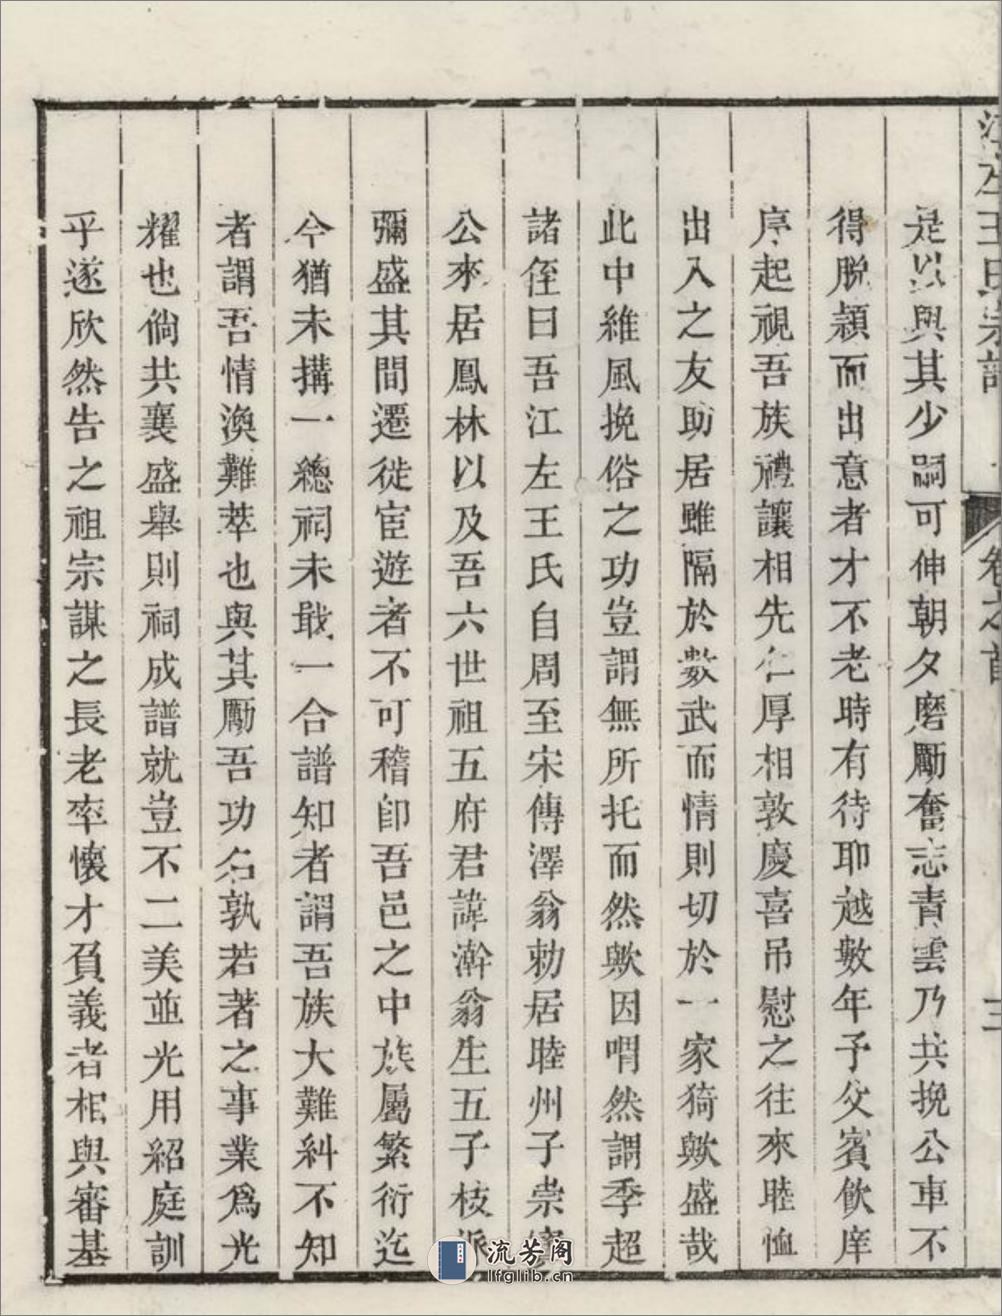 王氏宗譜
卷之首
三
是以與其少嗣可伸朝夕磨勵奮志青雲乃共挽公車不
得脫穎而出意者才不老時有待耶越數年子父賓飲庠
序起視吾族禮讓相先仁厚相敦慶喜吊慰之往來睦恤
出入之友助居雖隔於數武而情則切於一家猗歟盛哉
此中維風挽俗之功豈謂無所托而然歟因喟然謂季超
諸侄曰吾江左王氏自周至宋傳澤翁勅居睦州子崇
公來居鳳林以及吾六世祖五府君諱澣翁生五子枝派
彌盛其間遷徙宦遊者不可稽即吾邑之中族屬繁衍迄
今猶未搆一總祠未戢一合譜知者謂吾族大難糾不知
者謂吾情渙難萃也與其勵吾功名孰若著之事業爲光
耀也倘共襄盛舉則祠成譜就豈不二美並光用紹庭訓
乎遂欣然告之祖宗謀之長老率懷才負義者相與審基
流芳阁
lfglib.cn